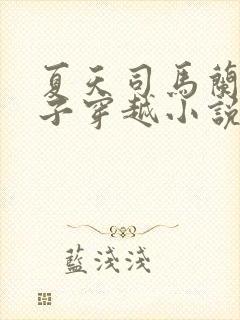 夏天司馬蘭
子穿越小說
藍淺淺